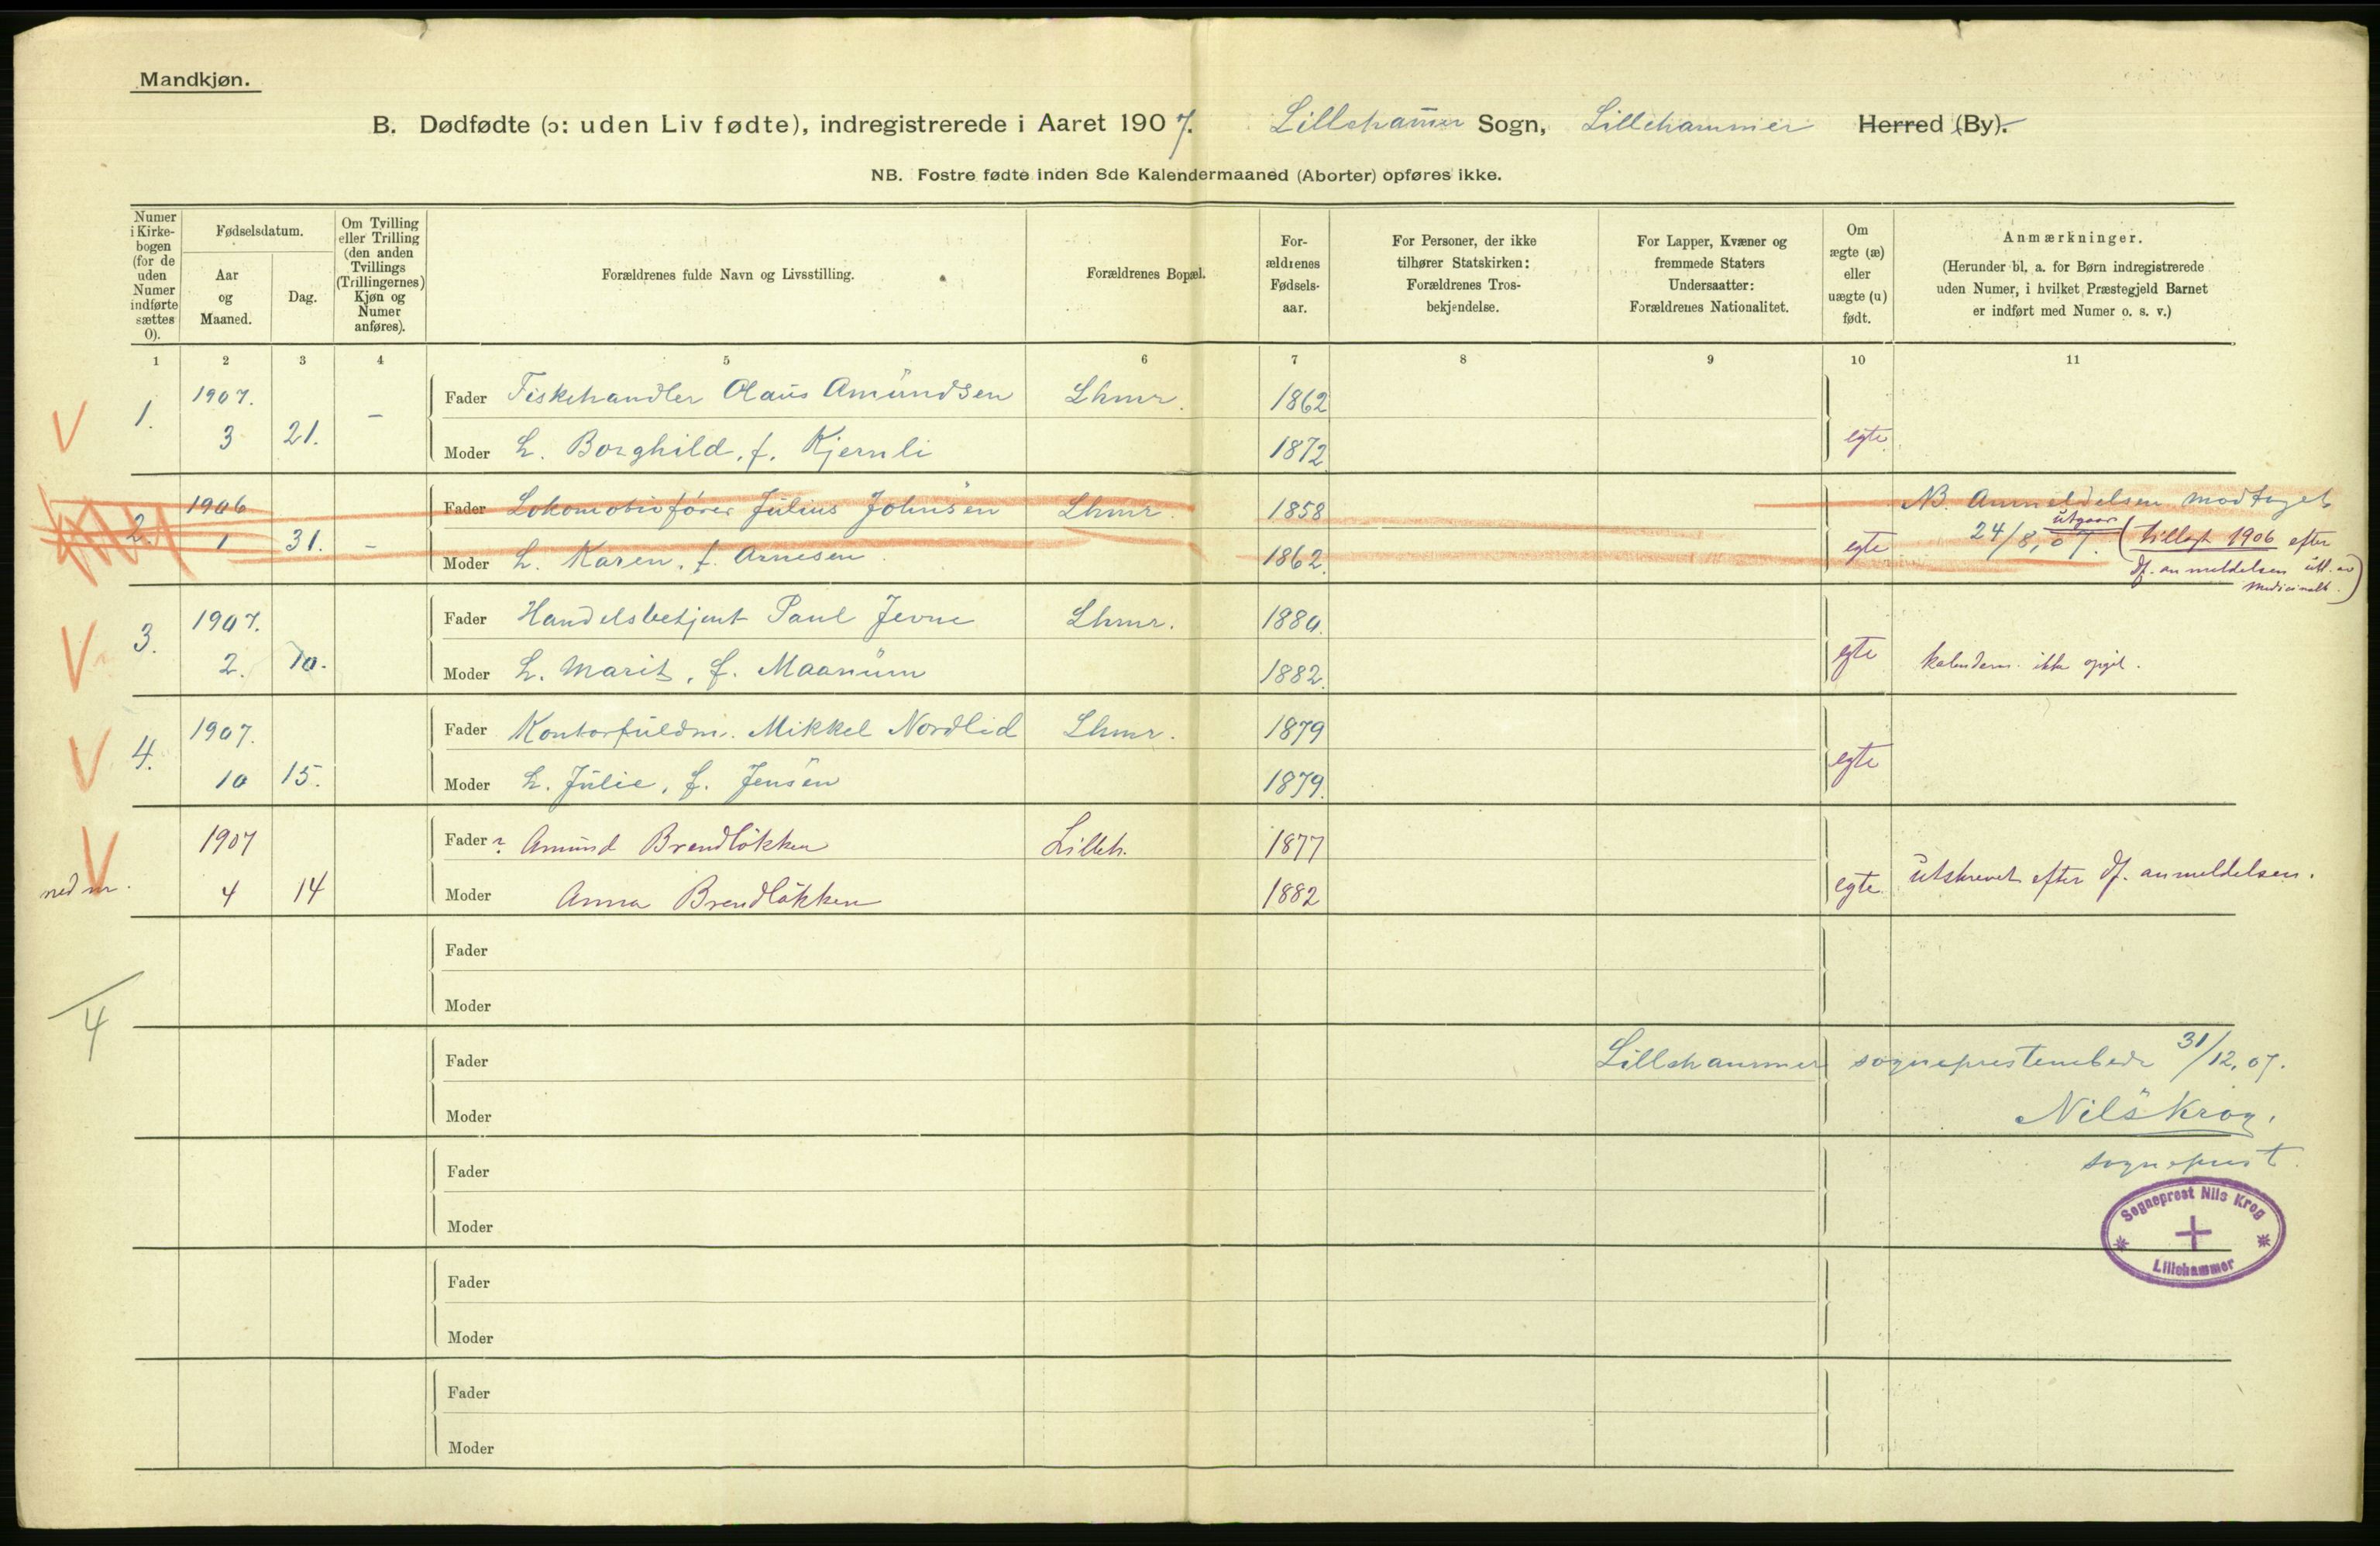 Mandkjøn.
B. Dødfødte (ɔ: uden Liv fødte), indregistrerede i Aaret 1907. Lillehammer Sogn, Lillehammer Herred (By).
NB. Fostre fødte inden 8de Kalendermaaned (Aborter) opføres ikke.
Numer i Kirke-bogen (for de uden Numer indførte sættes 0).
Fødselsdatum.
Aar og Maaned.
Dag.
Om Tvilling eller Trilling (den anden Tvillings (Trillingernes) Kjøn og Numer anføres).
Forældrenes fulde Navn og Livsstilling.
Forældrenes Bopæl.
For-ældrenes Fødsels-aar.
For Personer, der ikke tilhører Statskirken: Forældrenes Tros-bekjendelse.
For Lapper, Kvæner og fremmede Staters Undersaatter: Forældrenes Nationalitet.
Om ægte (æ) eller uægte (u) født.
Anmærkninger.
(Herunder bl. a. for Børn indregistrerede uden Numer, i hvilket Præstegjeld Barnet er indført med Numer o. s. v.)
1 2 3 4 5 6 7 8 9 10 11
V 1. 1907. 3 21. –
Fader Fiskehandler Olaus Amundsen Lhmr. 1862
Moder h. Borghild, f. Kjernli 1872 egte
2. 1906 1 31. –
Fader Lokomotivfører Julius Johnsen Lhmr. 1858 NB. Anmeldelsen modtaget
Moder h. Karen, f. Arnesen 1862. egte 24/8, 07. utgaar (tillagt 1906 efter
df. anmeldelsen utl. av
Medicinalb.)
V 3. 1907. 2. 10.
Fader Handelsbetjent Paul Jevne Lhmr. 1880.
Moder h. Marit, f. Maanum 1882. egte kalenderm. ikke opgit.
V 4. 1907. 10 15.
Fader Kontorfuldm. Mikkel Nordlid Lhmr. 1879
Moder h. Julie, f. Jensen 1879. egte
V 1907 4 14
Fader Amund Brendløkken Lilleh. 1877
Moder Anna Brendløkken 1882 egte utskrevet efter df. anmeldelsen.
Fader
Moder
4
Fader Lillehammer sogneprestembede 31/12, 07.
Moder Nils Krog,
sogneprest.
Fader
Moder
Sogneprest Nils Krog
Lillehammer
Fader
Moder
Fader
Moder